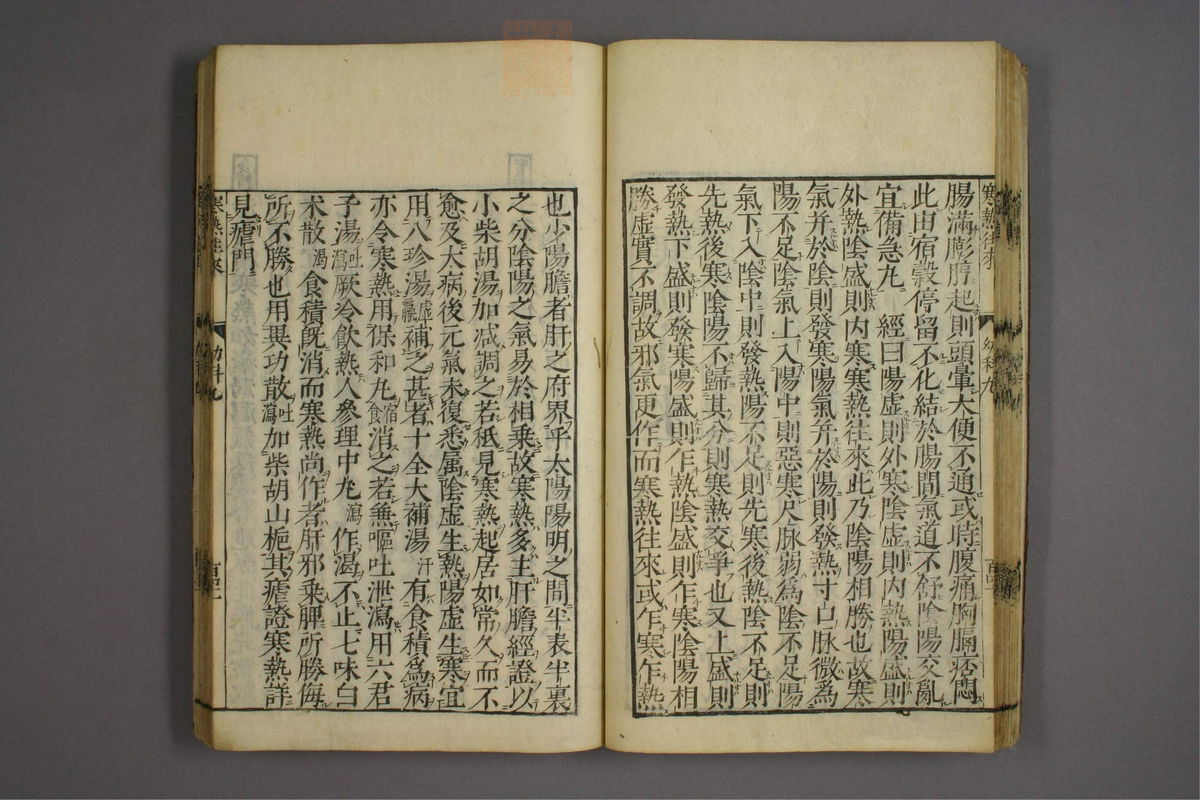 寒熱往來
幼科九
腸滿膨脝起則頭暈大便不通或時腹痛胸膈痞悶
此由宿穀停留不化結於腸間氣道不舒陰陽交亂
宜備急丸 經曰陽虛則外寒陰虛則內熱陽盛則
外熱陰盛則內寒寒熱往來此乃陰陽相勝也故寒
氣并於陰則發寒陽氣并於陽則發熱寸口脉微為
陽不足陰氣上入陽中則惡寒尺脉弱為陰不足陽
氣下入陰中則發熱陽不足則先寒後熱陰不足則
先熱後寒陰陽不歸其分則寒熱交爭也又上盛則
發熱下盛則發寒陽盛則乍熱陰盛則乍寒陰陽相
勝虛實不調故邪氣更作而寒熱往來或乍寒乍熱
也少陽膽者肝之府界乎太陽陽明之間半表半裏
之分陰陽之氣易於相乗故寒熱多主肝膽經證以
小柴胡湯加减調之若秖見寒熱起居如常久而不
愈及大病後元氣未復悉属陰虛生熱陽虛生寒宜
用八珍湯虛羸補之甚者十全大補湯汗有食積為病
亦令寒熱用保和丸宿食消之若兼嘔吐泄瀉用六君
子湯吐瀉厥冷飲熱人參理中丸瀉作渴不止七味白
术散渴食積既消而寒熱尚作者肝邪乗脾所勝侮
所不勝也用異功散吐瀉加柴胡山梔其瘧證寒熱詳
見瘧門
寒熱往來
幼科九